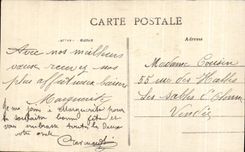 CARTE POSTALE
Avec nos meilleurs
vœux recevez nos
plus affectueux baisers
Marguerite
Je me joins à Marguerite pour
te souhaiter bonne fête et
vous embrasse toutes les deux
votre
Madame Cousin
55 rue des Halles
Les Sables d'Olonne
Vendée